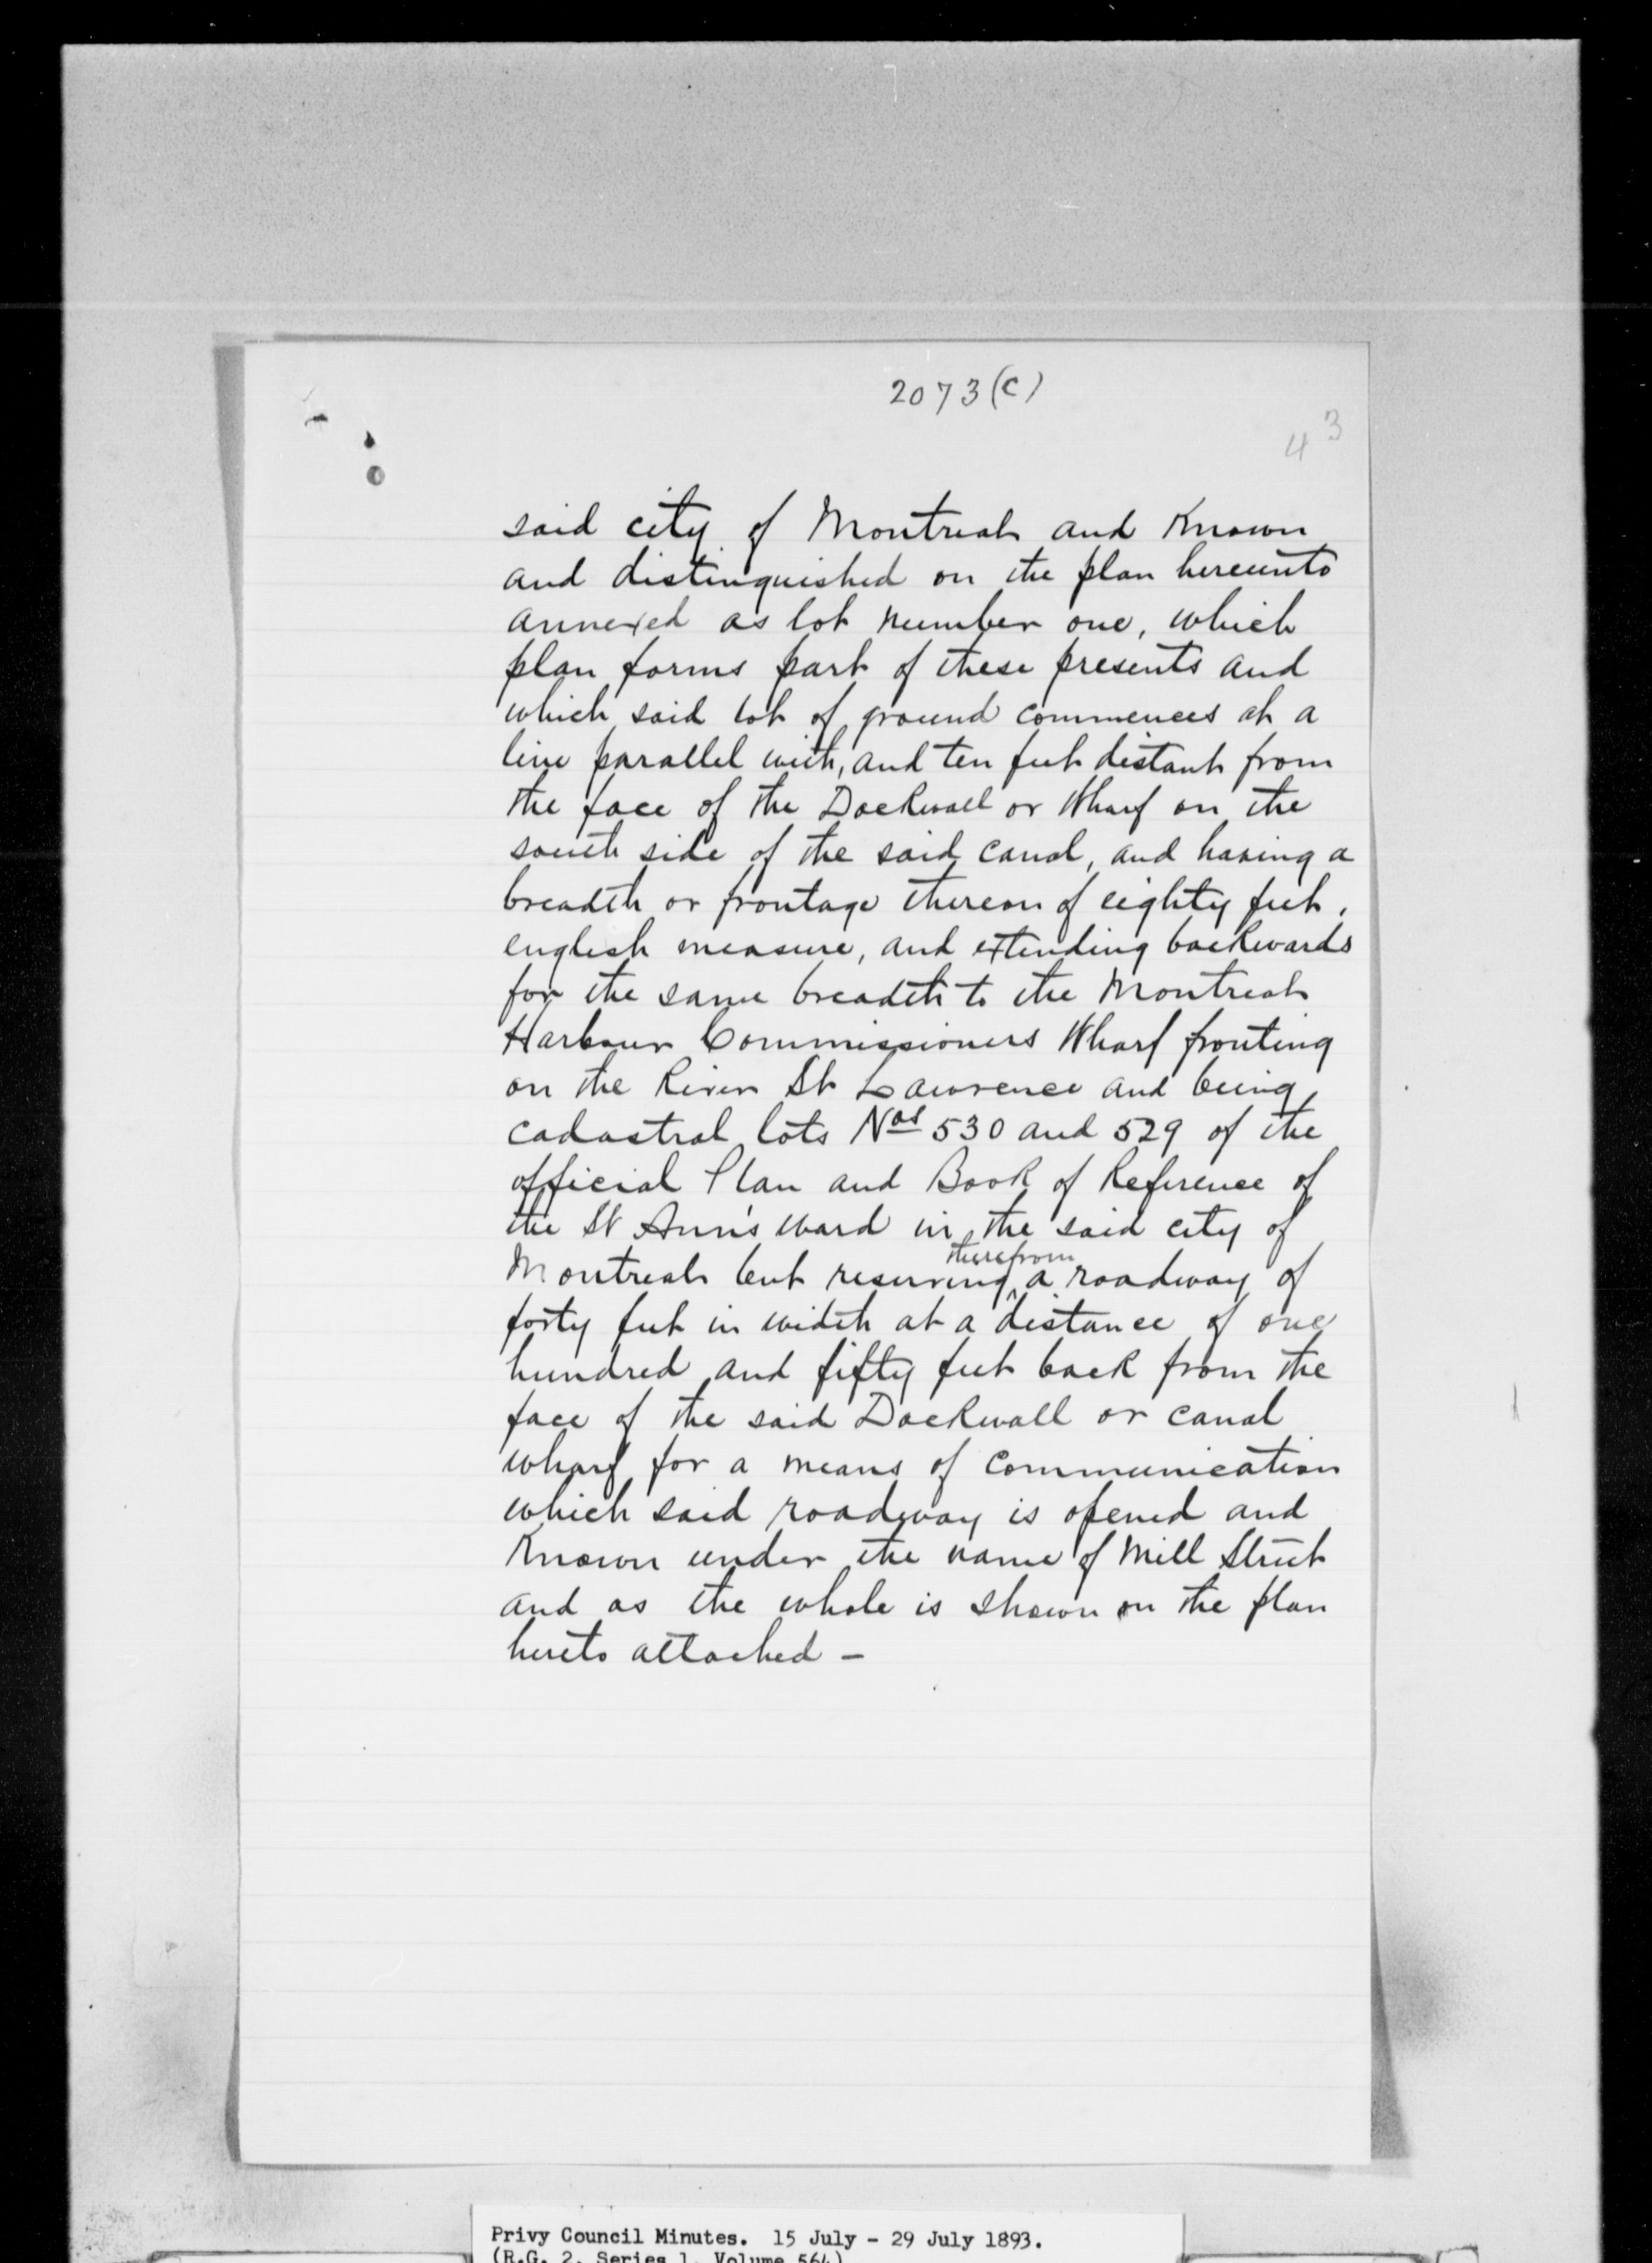 2073(C)
4 3
said city of Montreal and Known
and distinguished on the plan hereunto
annexed as lot number one, which
plan forms part of these presents and
which said lot of ground commences at a
line parallel with, and ten feet distant from
the face of the Dockwall or Wharf on the
south side of the said canal, and having a
breadth or frontage thereon of eighty feet,
english measure, and extending backwards
for the same breadth to the Montreal
Harbour Commissioners Wharf fronting
on the River St Lawrence and being
cadastral lots Nos 530 and 529 of the
official Plan and Book of Reference of
the St Ann's ward in the said city of
therefrom
Montreal but reserving ^ a roadway of
forty feet in width at a distance of one
hundred and fifty feet back from the
face of the said Dockwall or canal
wharf for a means of communication
which said roadway is opened and
Known under the name of Mill Street
and as the whole is shown on the plan
hereto attached –
Privy Council Minutes. 15 July - 29 July 1893.
(R.G. 2, Series 1, Volume 564)